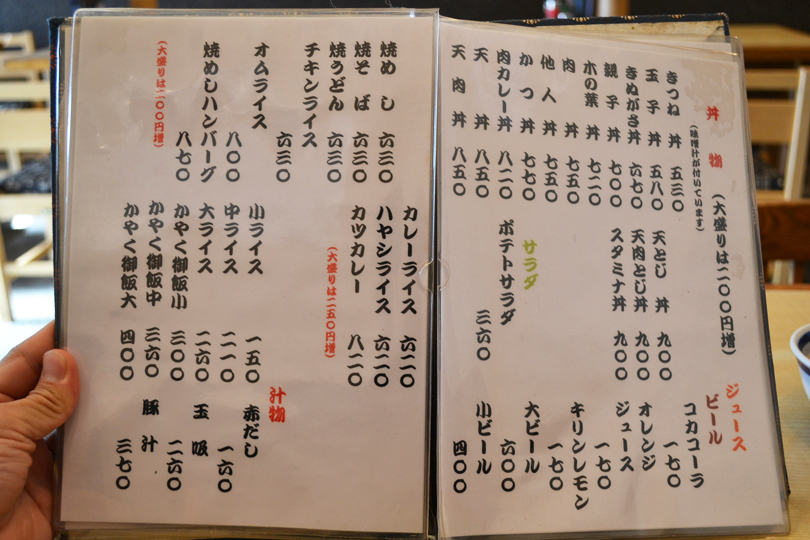 丼物 (大盛りは二〇〇円増)
(味噌汁が付いています)
きつね丼 五三〇
玉子丼 五八〇
きぬがさ丼 六七〇
親子丼 七〇〇
木の葉丼 七二〇
肉丼 七五〇
他人丼 七五〇
かつ丼 七七〇
肉カレー丼 八二〇
天丼 八五〇
天肉丼 八五〇
天とじ丼 九〇〇
天肉とじ丼 九〇〇
スタミナ丼 九〇〇
サラダ
ポテトサラダ 三六〇
ジュース
ビール
コカコーラ 一七〇
オレンジジュース 一七〇
キリンレモン 一七〇
大ビール 六〇〇
小ビール 四〇〇
焼めし 六三〇
焼そば 六三〇
焼うどん 六三〇
チキンライス 六三〇
オムライス 八〇〇
焼めしハンバーグ 八七〇
(大盛りは二〇〇円増)
カレーライス 六二〇
ハヤシライス 六二〇
カツカレー 八二〇
(大盛りは二五〇円増)
小ライス 一五〇
中ライス 二一〇
大ライス 二六〇
かやく御飯小 三〇〇
かやく御飯中 三六〇
かやく御飯大 四〇〇
汁物
赤だし 一六〇
玉吸 二六〇
豚汁 三七〇